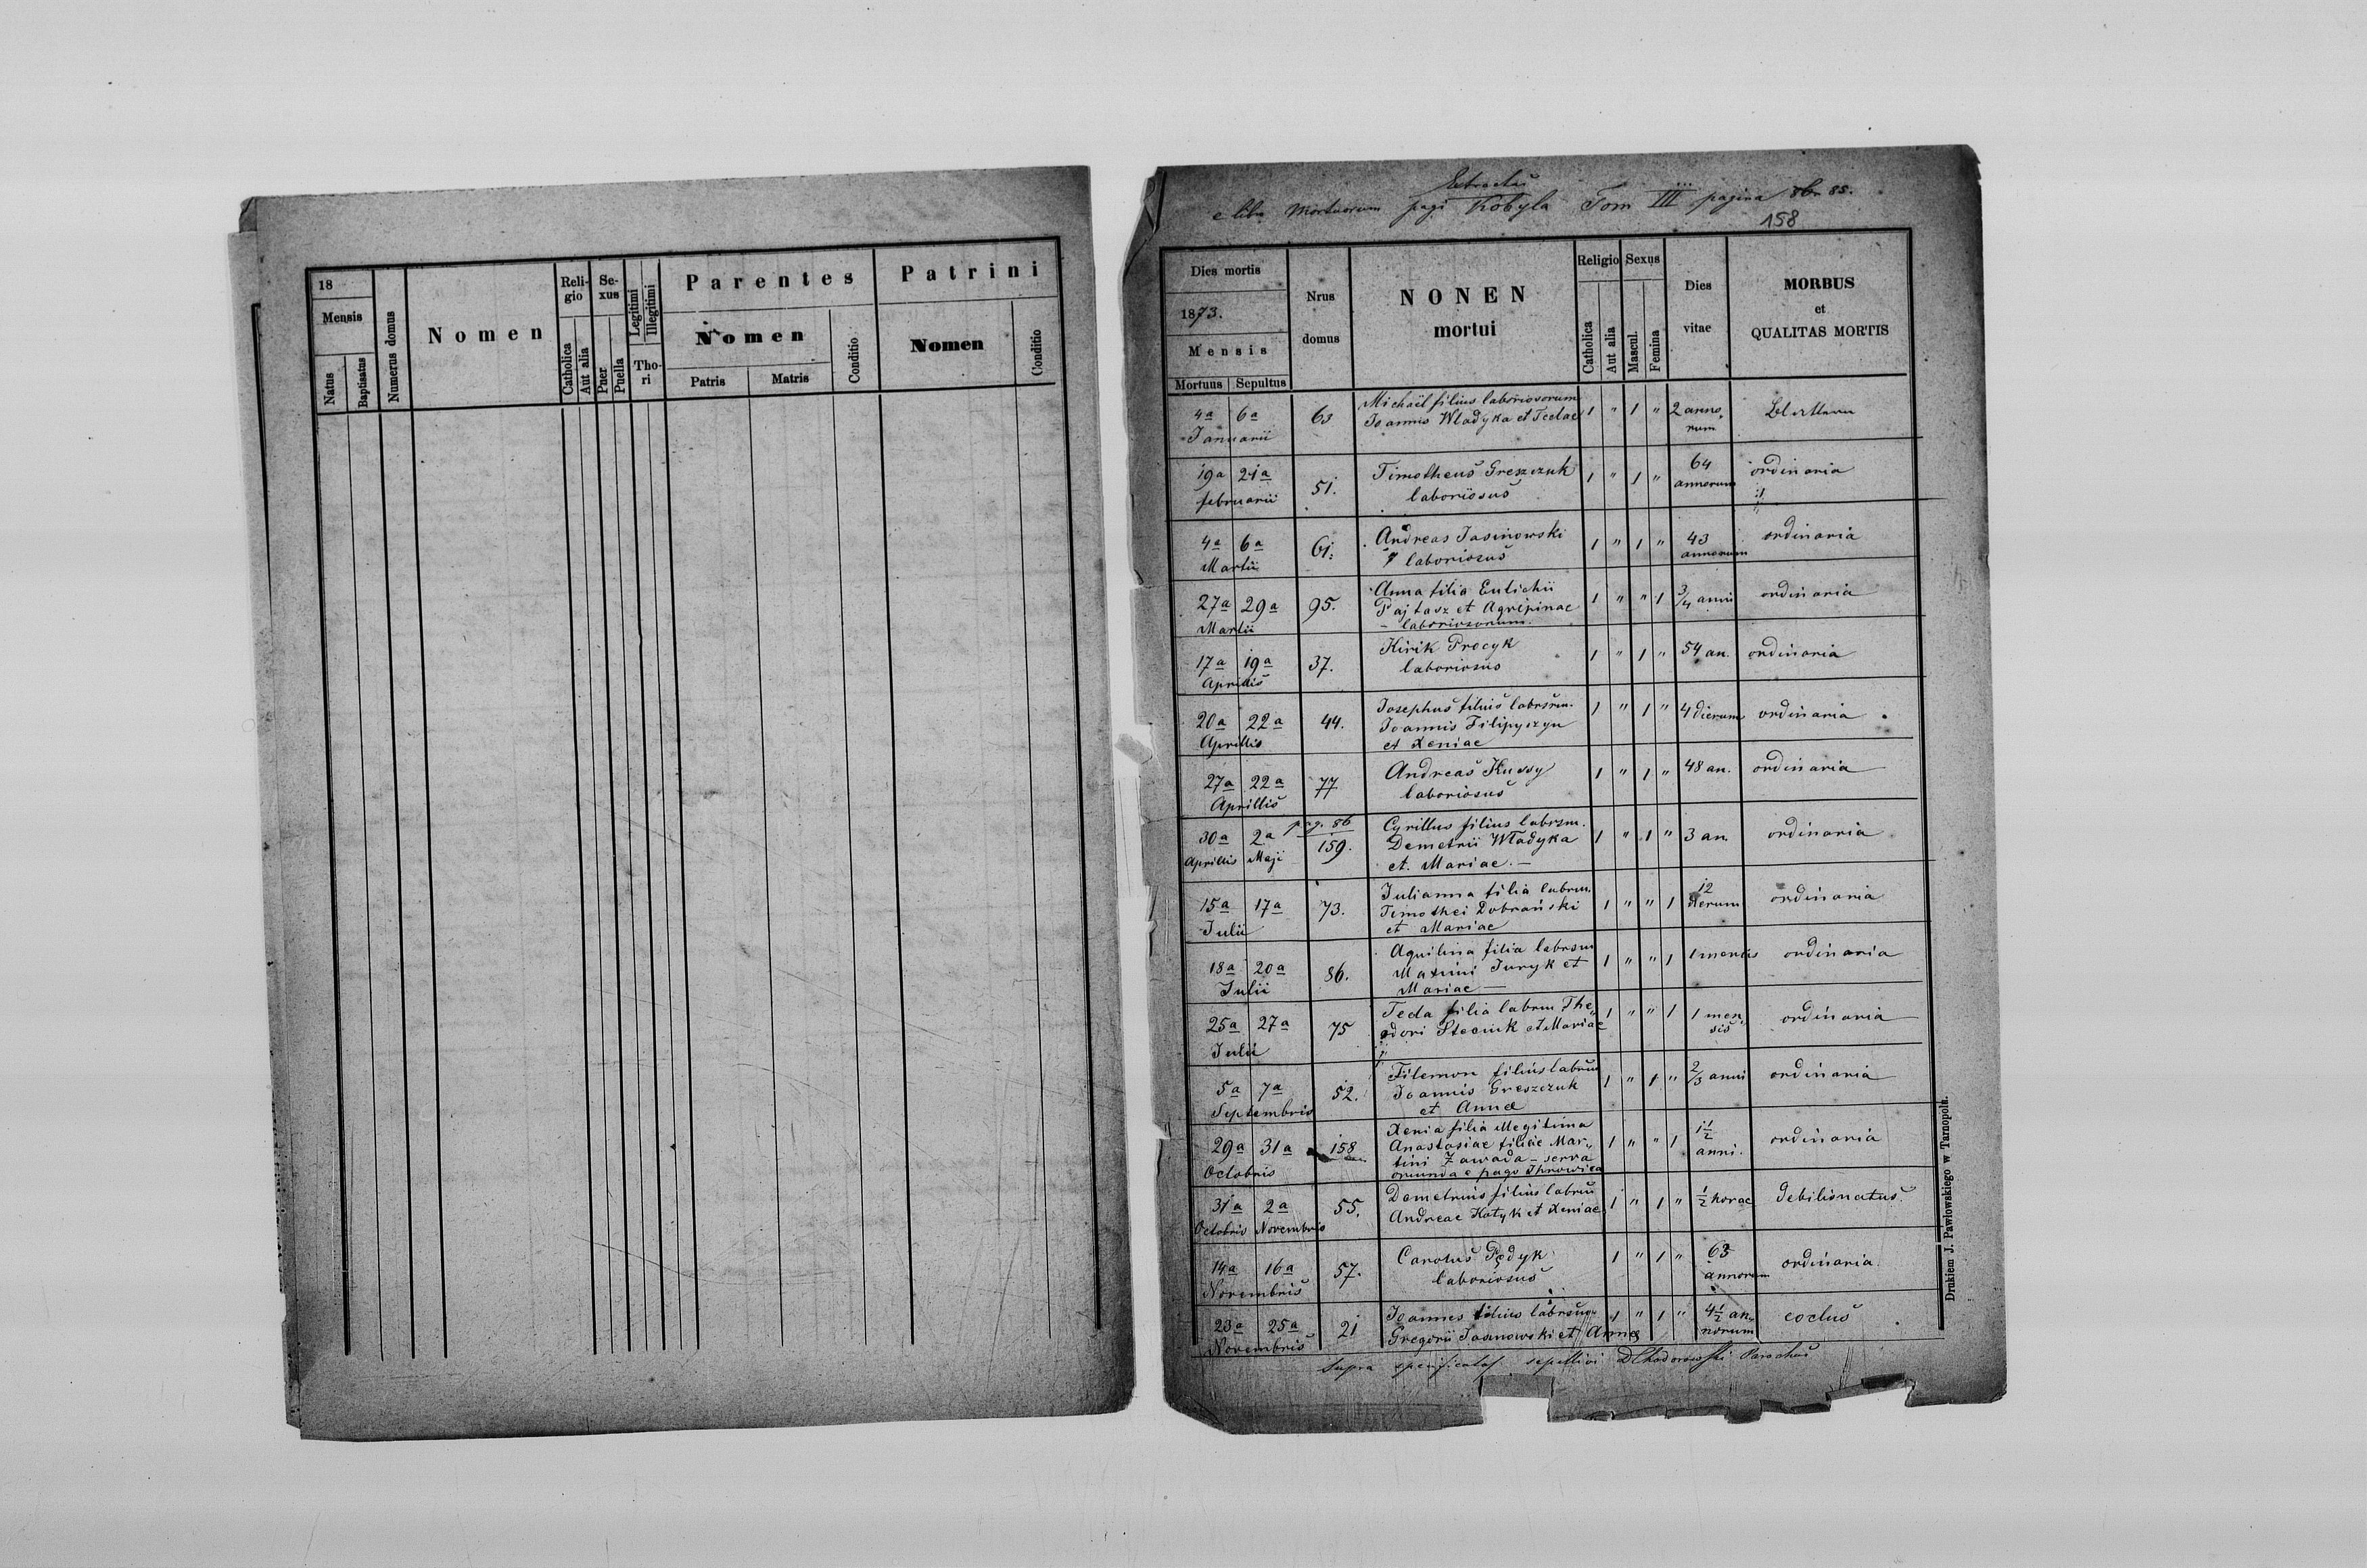 18
Mensis
Natus
Baptisatus
Numerus domus
Nomen
Reli-
gio
Catholica
Aut alia
Se-
xus
Puer
Puella
Legitimi
Illegitimi
Tho-
ri
Parentes
Nomen
Patris
Matris
Conditio
Patrini
Nomen
Conditio
Extractus
e libr Mortuorum pagi Kobyla Tom III pagina 85.
158
Dies mortis
1873.
Mensis
Mortuus Sepultus
Nrus
domus
NONEN
mortui
Religio
Catholica
Aut alia
Sexus
Mascul.
Femina
Dies
vitae
MORBUS
et
QUALITAS MORTIS
Michaël filius laboriosorum
4a 6a 63 Joannis Wladyka et Teclae 1 " 1 " 2 anno
Januarii rum
19a 21a 51. Timotheus Greszczuk 1 " 1 " 64 ordinaria
februarii laboriosus annorum
4a 6a 61. Andreas Jasinowski 1 " 1 " 43 ordinaria
Martii laboriosus annorum
Anna filia Eutichii
27a 29a 95. Pajtasz et Agripinae 1 " " 1 3/4 anni ordinaria
Martii laboriosorum.
17a 19a 37. Kirik Procyk 1 " 1 " 54 an. ordinaria
Aprilis laboriosus
Josephus filius labrsrm.
20a 22a 44. Joannis Filipyszyn 1 " 1 " 4 dierum ordinaria
Aprillis et Xeniae
27a 22a 77 Andreas Kussy 1 " 1 " 48 an. ordinaria
Aprillis laboriosus
pag. 86 Cyrillus filius labrsm.
30a 2a 159. Demetrii Wladyka 1 " 1 " 3 an. ordinaria
Aprillis Maji et. Mariae.
Julianna filia labrm.
15a 17a 73. Timothei Dobrański 1 " " 1 12 dierum ordinaria
Julii et Mariae
Aquilina filia labrsm
18a 20a 86. Maximi Juryk et 1 " " 1 1 mensis ordinaria
Julii Mariae
Tecla filia labrm The„
25a 27a 75 odori Steciuk et Mariae 1 " " 1 1 men„
Julii sis ordinaria
Filemon filius labrm
5a 7a 52. Joannis Greszczuk 1 " 1 " 2/3 anni ordinaria
Septembris et Annae
Xenia filia illegitima
29a 31a 158 Anastasiae filiae Mar„ 1 " " 1 1 1/2 ordinaria
Octobris tini Zawada - serva anni.
oriunda e pago Ihrowica
Demetrius filius labrm
31a 2a 55. Andreae Hatyk et Xeniae 1 " 1 " 1/2 horae debilis natus.
Octobris Novembris
14a 16a 57. Carolus Pędyk 1 " 1 " 63 ordinaria
Novembris laboriosus annorum
Joannes filius labrsm
23a 25a 21 Gregorii Jasinowski et Annae 1 " 1 " 4 1/2 an„ coctus
Novembris norum
Supra specificatos sepellivi DChodorowski Parochus
Drukiem J. Pawłowskiego w Tarnopolu.